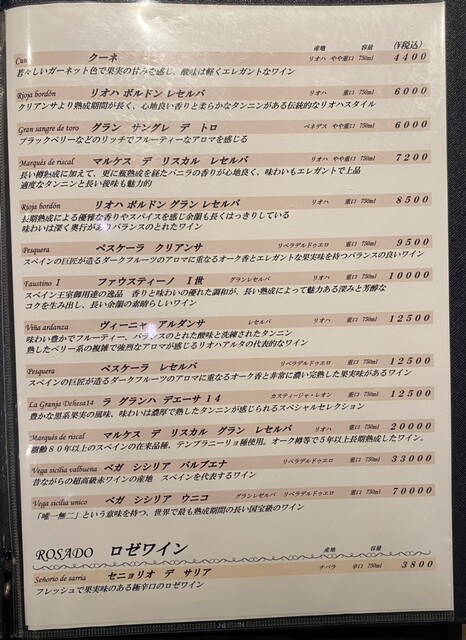 産地 容量 (¥税込)
Cune クーネ リオハ やや重口 750ml 4400
若々しいガーネット色で果実の甘みを感じ、酸味は軽くエレガントなワイン
Rioja bordón リオハ ボルドン レセルバ リオハ 重口 750ml 6000
クリアンサより熟成期間が長く、心地良い香りと柔らかなタンニンがある伝統的なリオハスタイル
Gran sangre de toro グラン サングレ デ トロ ペネデス やや重口 750ml 6000
ブラックベリーなどのリッチでフルーティーなアロマを感じる
Marqués de riscal マルケス デ リスカル レセルバ リオハ やや重口 750ml 7200
長い樽熟成に加えて、更に瓶熟成を経たバニラの香りが心地良く、味わいもエレガントで上品
適度なタンニンと長い後味も魅力的
Rioja bordón リオハ ボルドン グラン レセルバ リオハ 重口 750ml 8500
長期熟成による優雅な香りやスパイスを感じ余韻も長くはっきりしている
味わいは深く奥行がありバランスのとれたワイン
Pesquera ペスケーラ クリアンサ リベラデルドゥエロ 重口 750ml 9500
スペインの巨匠が造るダークフルーツのアロマに重なるオーク香とエレガントな果実味を持つバランスの良いワイン
Faustino I ファウスティーノ I世 グランレセルバ リオハ 重口 750ml 10000
スペイン王室御用達の逸品 香りと味わいの優れた調和が、長い熟成によって魅力ある深みと芳醇な
コクを生み出し、長い余韻の素晴らしいワイン
Viña ardanza ヴィーニャ アルダンサ レセルバ リオハ 重口 750ml 12500
味わい豊かでフルーティー、バランスのとれた酸味と洗練されたタンニン
熟したベリー系の複雑で強烈なアロマが感じるリオハアルタの代表的なワイン
Pesquera ペスケーラ レセルバ リベラデルドゥエロ 重口 750ml 12500
スペインの巨匠が造るダークフルーツのアロマに重なるオーク香と非常に濃い完熟した果実味があるワイン
La Granja Dehesa14 ラ グランハ デエーサ14 カスティージャ・レオン 重口 750ml 12500
豊かな黒系果実の風味、味わいは濃厚で熟したタンニンが感じられるスペシャルセレクション
Marqués de riscal マルケス デ リスカル グラン レセルバ リオハ 重口 750ml 20000
樹齢80年以上のスペインの在来品種、テンプラニーリョ種使用。オーク樽等で5年以上長期熟成したワイン。
Vega sicilia valbuena ベガ シシリア バルブエナ リベラデルドゥエロ 重口 750ml 33000
昔ながらの超高級赤ワインの産地 スペインを代表するワイン
Vega sicilia unico ベガ シシリア ウニコ グランレセルバ リベラデルドゥエロ 重口 750ml 70000
「唯一無二」という意味を持つ、世界で最も熟成期間の長い国宝級のワイン
ROSADO ロゼワイン 産地 容量
Señorio de sarria セニョリオ デ サリア ナバラ 辛口 750ml 3800
フレッシュで果実味のある極辛口のロゼワイン